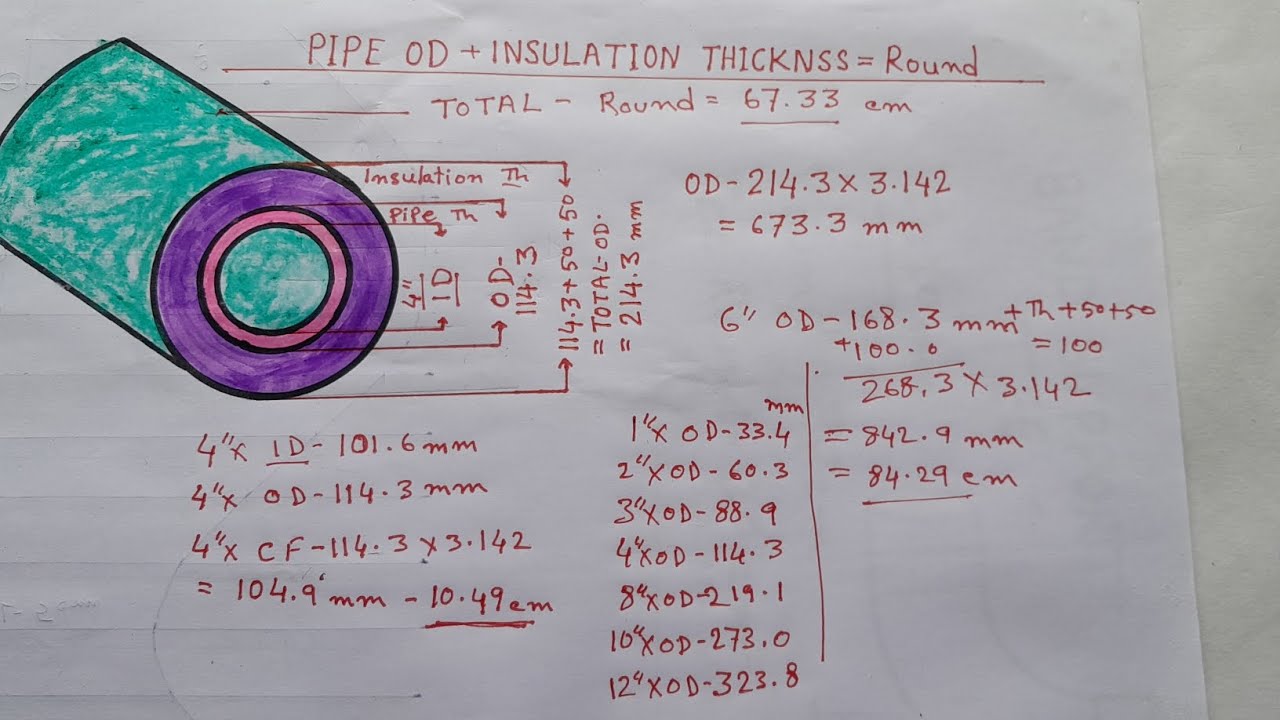 PIPE OD + INSULATION THICKNSS = Round
TOTAL - Round = 67.33 cm
Insulation Th
Pipe Th
4" ID
OD-114.3
114.3+50+50
= TOTAL-OD.
= 214.3 mm
OD-214.3 X 3.142
= 673.3 mm
6" OD-168.3 mm + Th + 50 + 50
+100.0 = 100
268.3 X 3.142
= 842.9 mm
= 84.29 cm
4"X ID-101.6 mm
4"X OD-114.3 mm
4"X CF-114.3 X 3.142
= 104.9 mm - 10.49 cm
mm
1"X OD-33.4
2"X OD-60.3
3"X OD-88.9
4"X OD-114.3
8"X OD-219.1
10"X OD-273.0
12"X OD-323.8